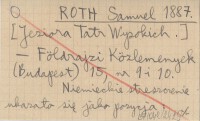 ROTH Samuel 1887.
[Jeziora Tatr Wysokich.]
— Földrajzi Közlemények
(Budapest) 15, na 9 i 10.
Niemieckie streszczenie
ukazało się jako pozycja: